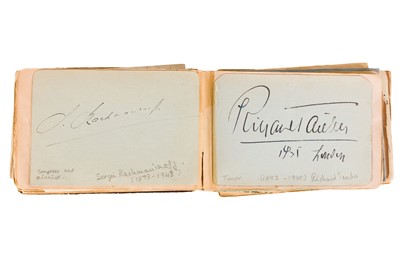 S. Rachmaninoff
Composer and
pianist.
Sergei Rachmaninoff
(1873-1943)
Richard Tauber
1931 London
Tenor (1892-1948) Richard Tauber